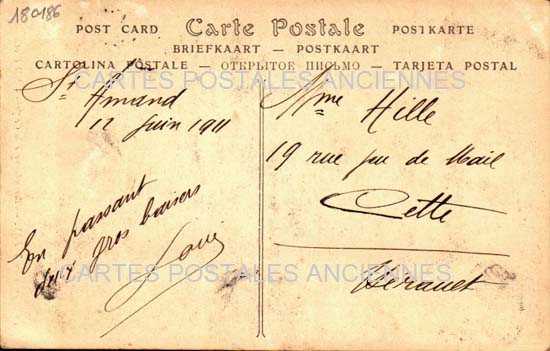 180186
POST CARD Carte Postale POSTKARTE
BRIEFKAART — POSTKAART
CARTOLINA POSTALE — ОТКРЫТОЕ ПИСЬМО — TARJETA POSTAL
CARTES POSTALES ANCIENNES
St Amand
12 Juin 1911
En passant
deux gros baisers
Mme Hille
19 rue jeu de Mail
Cette
Hérault
CARTES POSTALES ANCIENNES